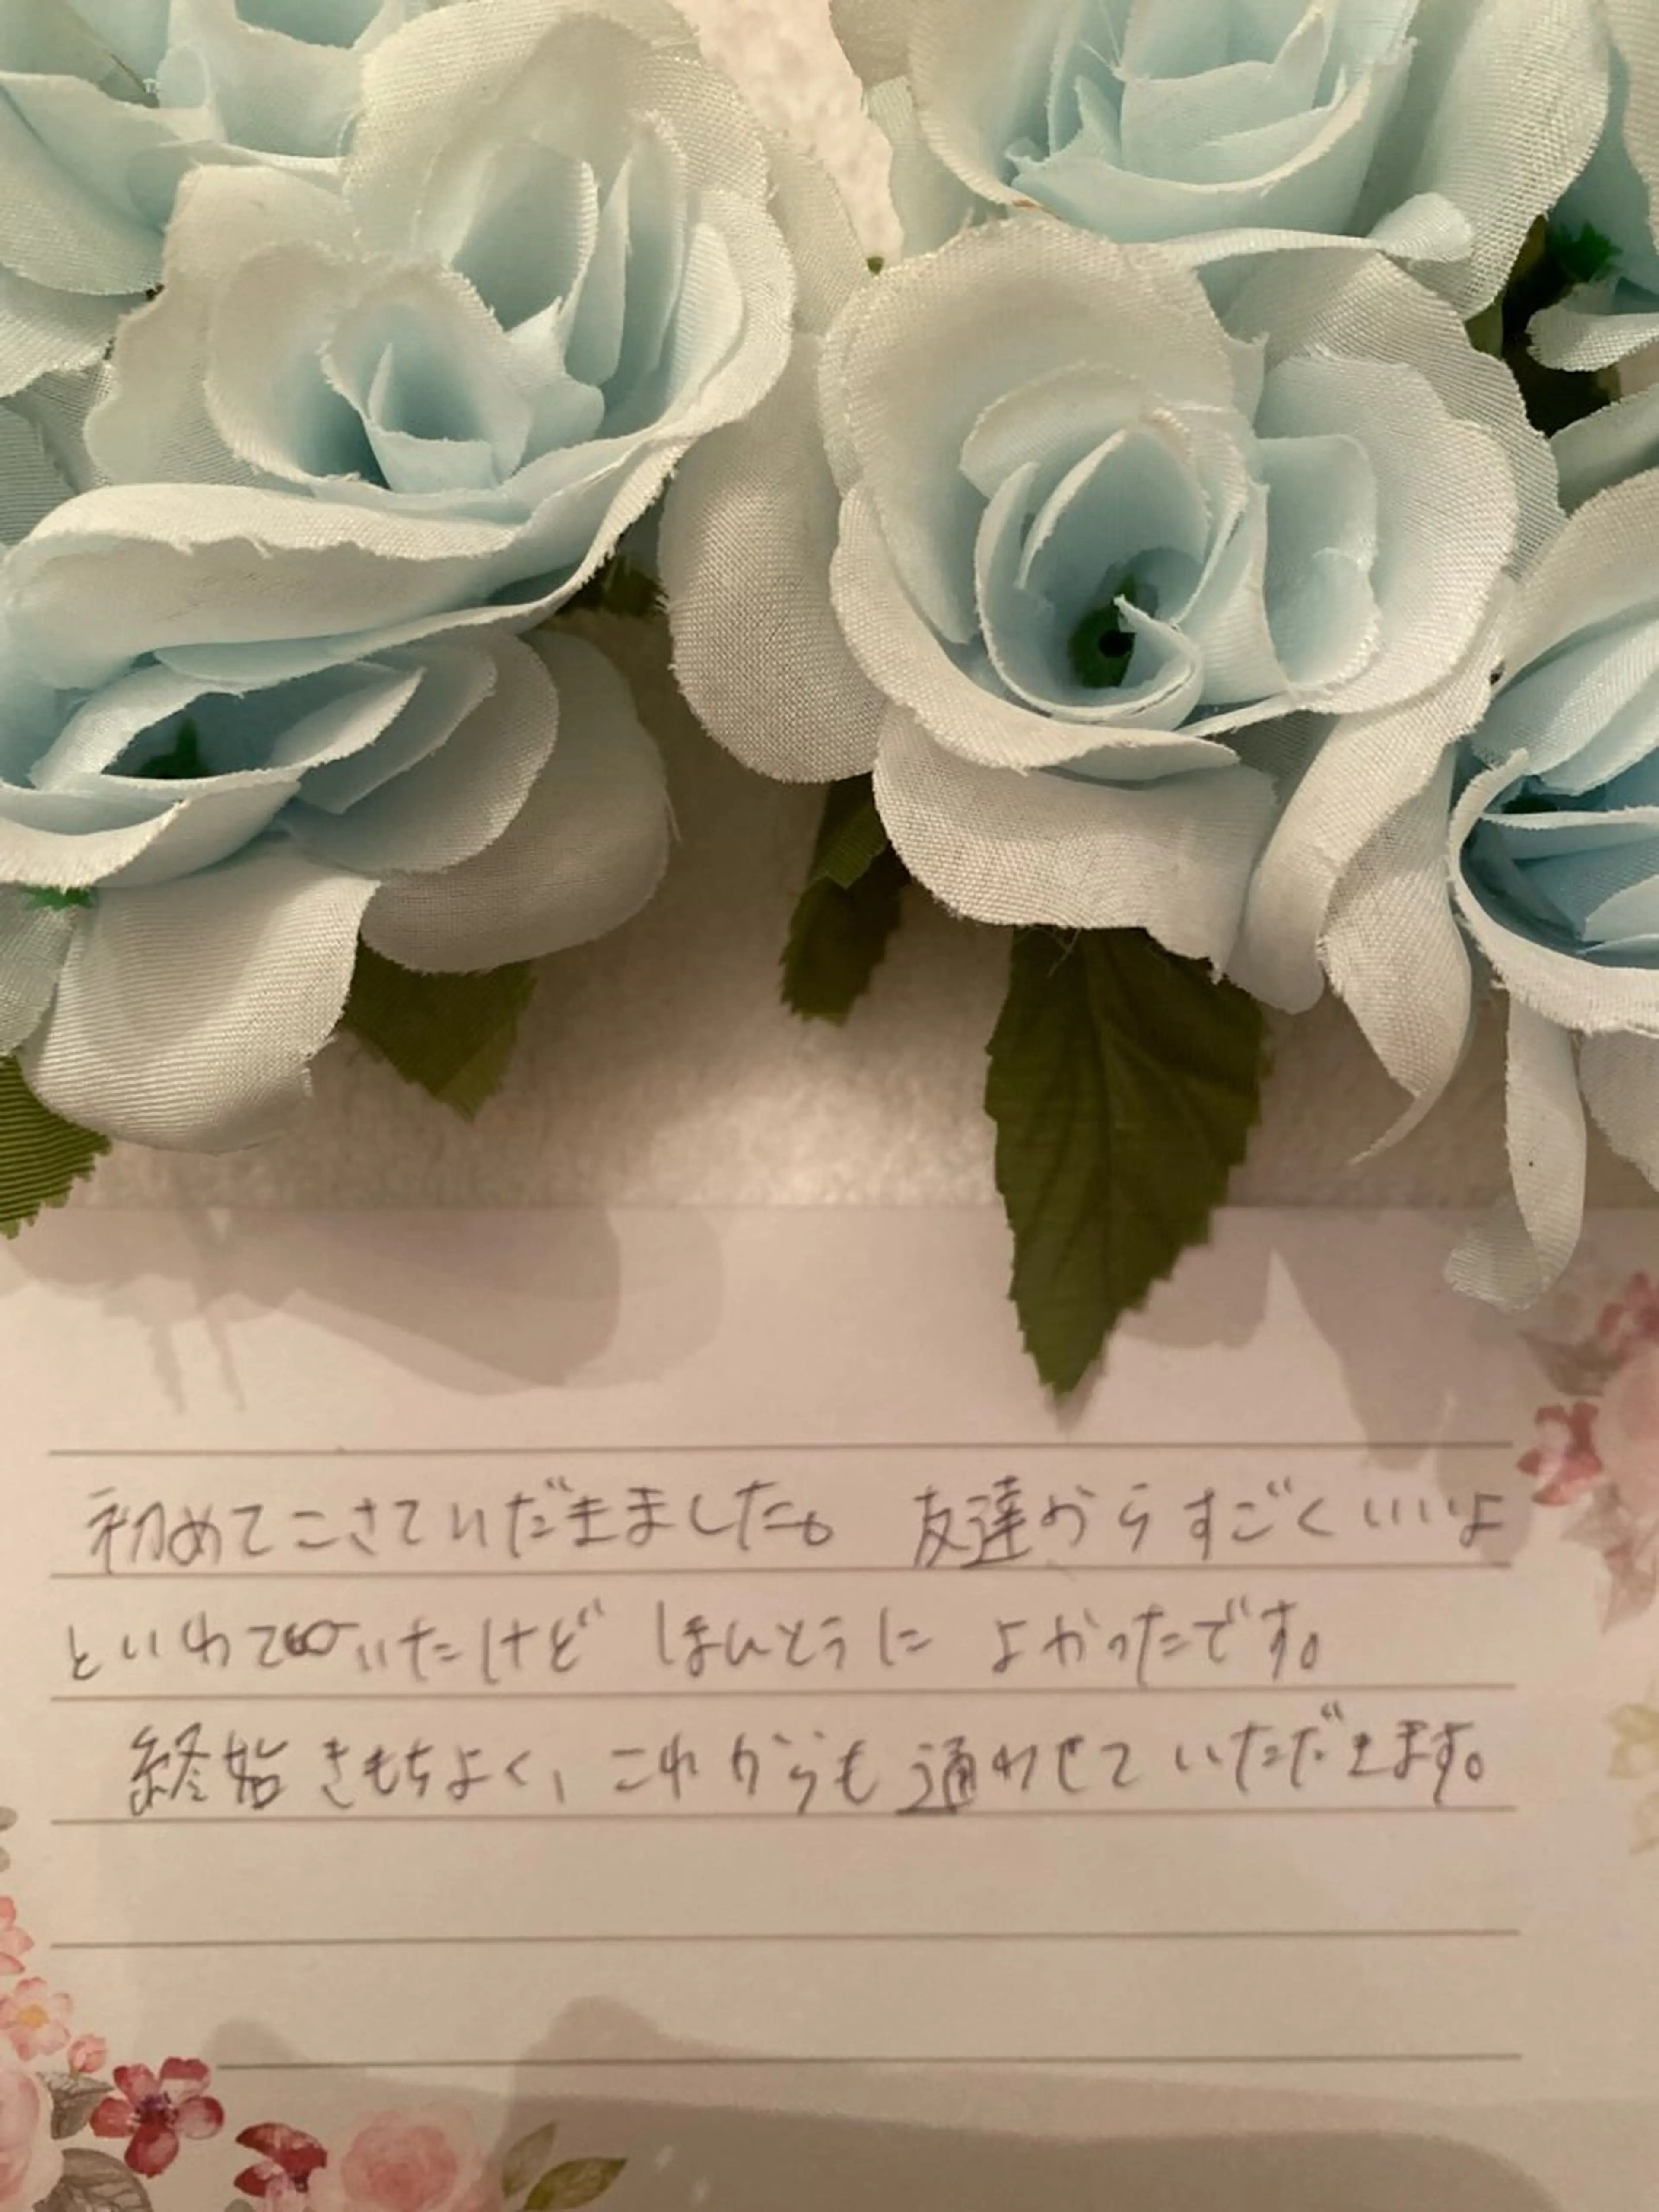 初めてこさていだきました。 友達からすごくいいよ
といわていたけど ほんとうに よかったです。
終始 きもちよく、これからも 通わせて いただきます。